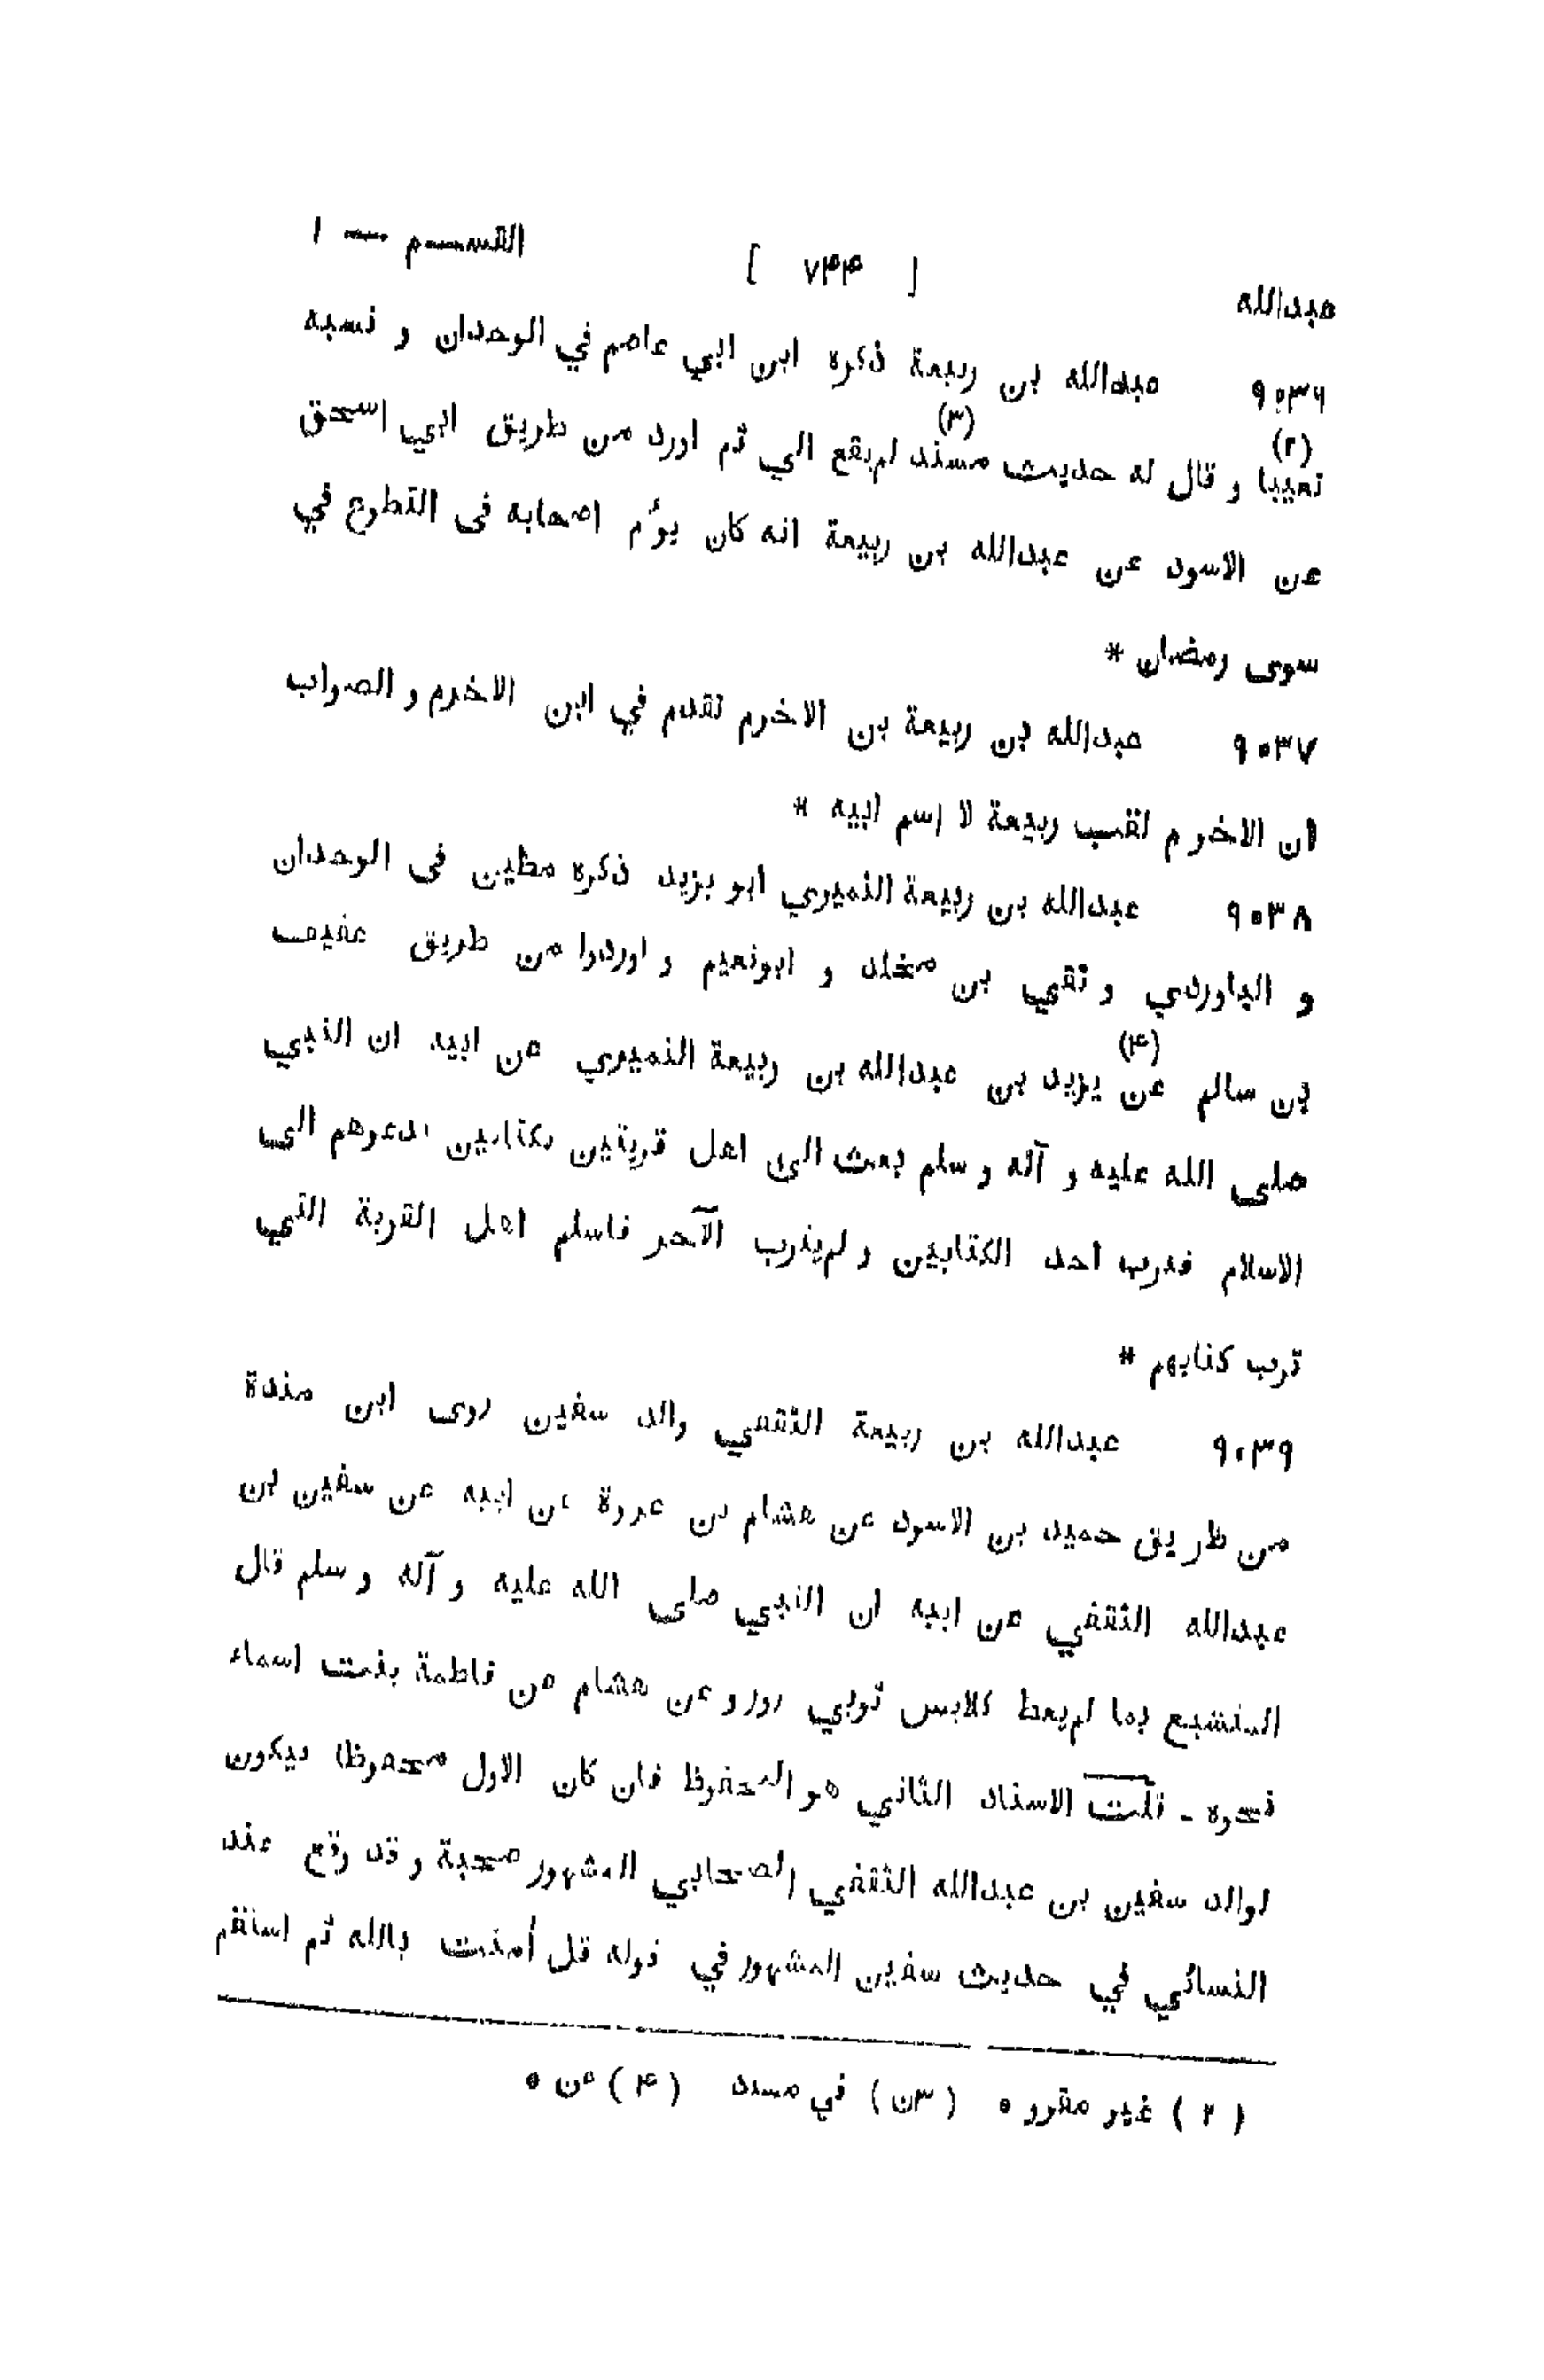 عبدالله [ ٧٤٤ ] القســـم — ١
٩٠٣٦ عبدالله بن ربيعة ذكره ابن ابي عاصم في الوحدان و نسبه
(٢) (٣)
تعيبا و قال له حديث مسند لم يقع الي ثم اورد من طريق ابي اسحق
عن الاسود عن عبدالله بن ربيعة انه كان يؤم اصحابه فى التطوع في
سوى رمضان *
٩٠٣٧ عبدالله بن ربيعة بن الاخرم تقدم في ابن الاخرم و الصواب
ان الاخرم لقب ربيعة لا اسم ابيه *
٩٠٣٨ عبدالله بن ربيعة النميري ابو يزيد ذكره مطين فى الوحدان
و الباوردي و تقي بن مخلد و ابونعيم و اوردوا من طريق عفيف
(٤)
بن سالم عن يزيد بن عبدالله بن ربيعة النميري عن ابيه ان النبي
صلى الله عليه و آله و سلم بعث الى اهل قريتين بكتابين يدعوهم الى
الاسلام فترب احد الكتابين و لم يترب الآخر فاسلم اهل القرية التي
ترب كتابهم *
٩٠٣٩ عبدالله بن ربيعة الثقفي والد سفين روى ابن مندة
من طريق حميد بن الاسود عن هشام بن عروة عن ابيه عن سفين بن
عبدالله الثقفي عن ابيه ان النبي صلى الله عليه و آله و سلم قال
المتشبع بما لم يعط كلابس ثوبي زور و عن هشام عن فاطمة بنت اسماء
نحوه - قلت الاسناد الثاني هو المحفوظ فان كان الاول محفوظا فيكون
لوالد سفين بن عبدالله الثقفي الصحابي المشهور صحبة و قد وقع عند
النسائي في حديث سفين المشهور في قوله قل أمنت بالله ثم استقم
( ٢ ) غير مقرو ه ( ٣ن ) في مسند ( ٤ ) من ه